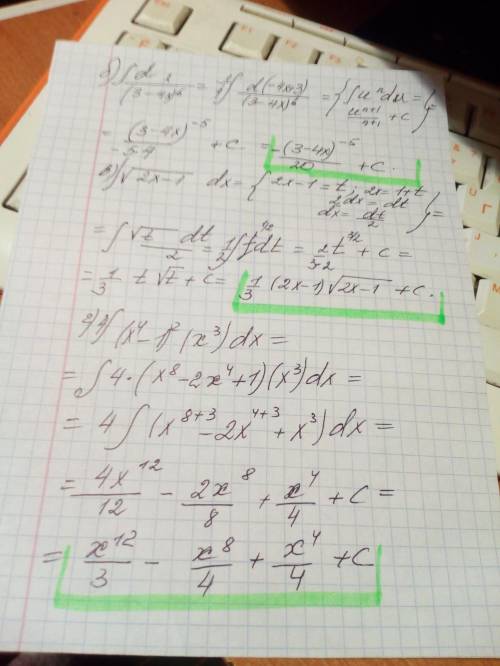 б) ∫ dx/(3-4x)⁶ = 1/4 ∫ d(-4x+3)/(3-4x)⁶ = { ∫uⁿdu = uⁿ⁺¹/n+1 + C } =
= (3-4x)⁻⁵/-5·4 + C = -(3-4x)⁻⁵/20 + C.
в) ∫√2x-1 dx = { 2x-1=t; 2x=1+t 2dx=dt dx=dt/2 } =
= ∫√t dt/2 = 1/2 ∫t^1/2 dt = 2t^3/2/3·2 + C =
= 1/3 t√t + C = 1/3 (2x-1)√2x-1 + C.
(x⁴-1)² (x³)dx =
= ∫4·(x⁸-2x⁴+1)(x³)dx =
= 4∫(x⁸⁺³-2x⁴⁺³+x³)dx =
= 4x¹²/12 - 2x⁸/8 + x⁴/4 + C =
= x¹²/3 - x⁸/4 + x⁴/4 + C